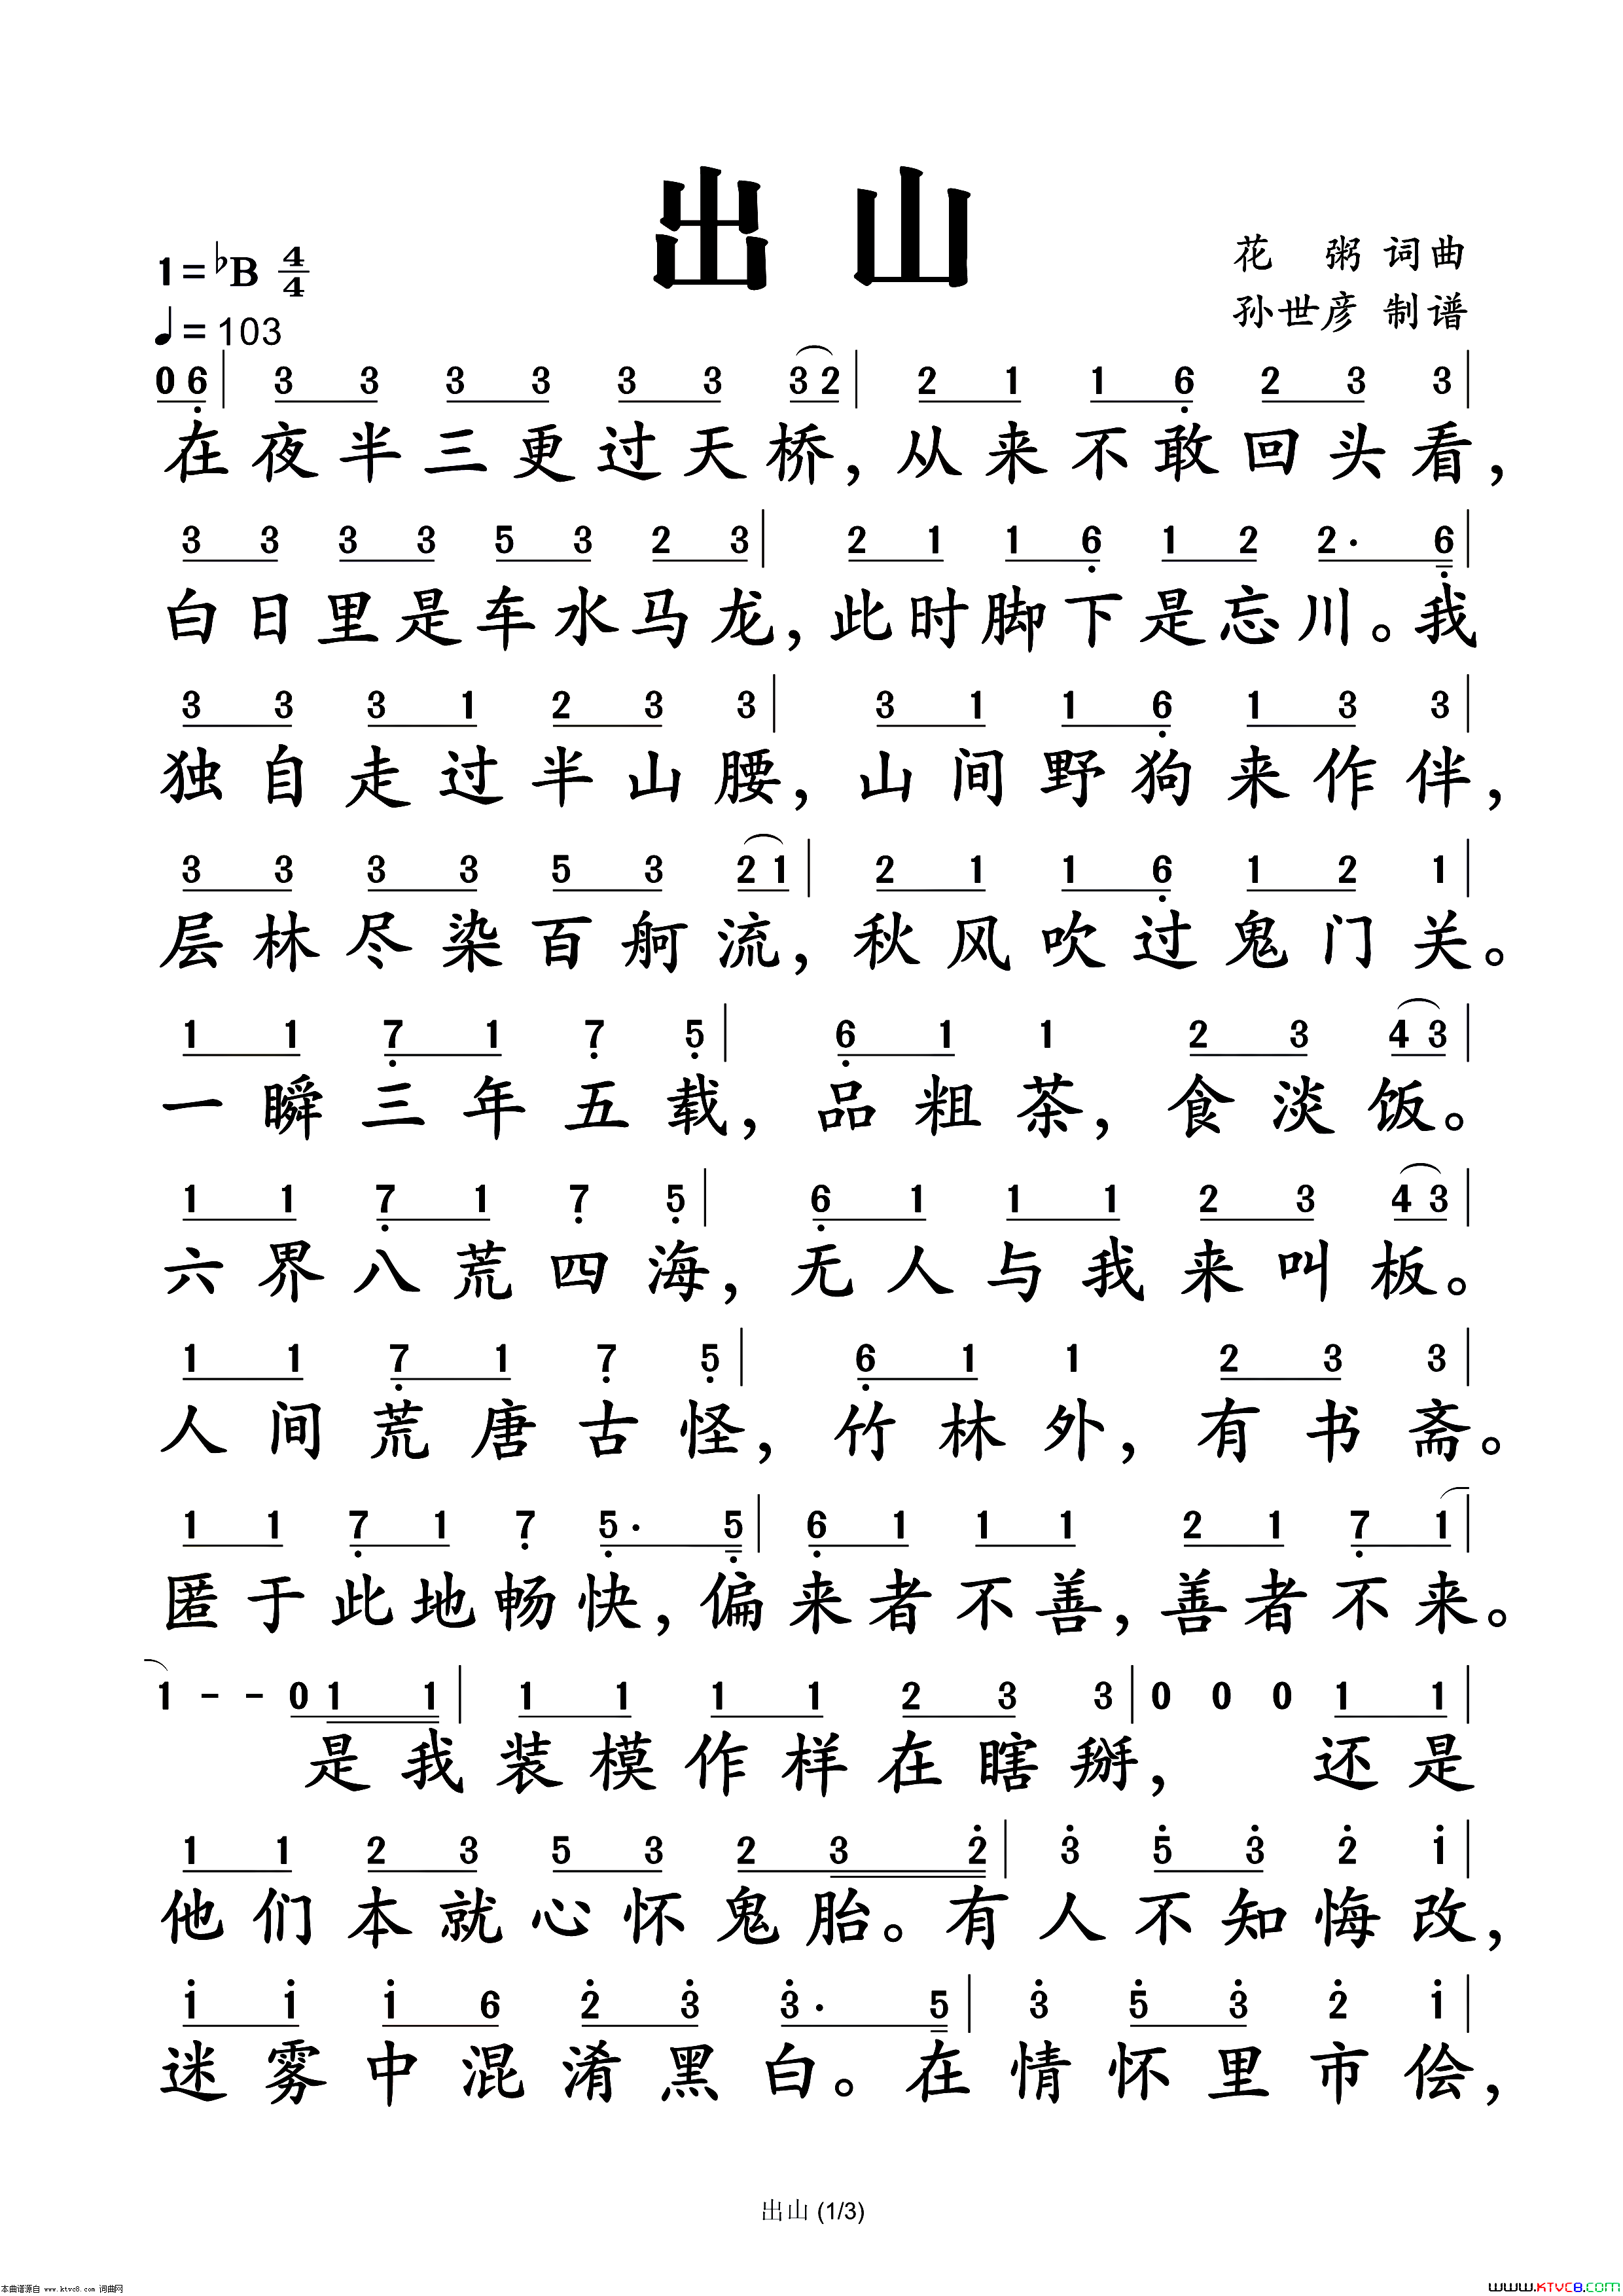 出 山
1=♭B 4/4
花 粥 词曲
♩=103
孙世彦 制谱
0 6 | 3 3 3 3 3 3 3 2 | 2 1 1 6 2 3 3 |
在夜半三更过天桥,从来不敢回头看,
3 3 3 3 5 3 2 3 | 2 1 1 6 1 2 2· 6 |
白日里是车水马龙,此时脚下是忘川。我
3 3 3 1 2 3 3 | 3 1 1 6 1 3 3 |
独自走过半山腰,山间野狗来作伴,
3 3 3 3 5 3 2 1 | 2 1 1 6 1 2 1 |
层林尽染百舸流,秋风吹过鬼门关。
1 1 7 1 7 5 | 6 1 1 2 3 4 3 |
一瞬三年五载,品粗茶,食淡饭。
1 1 7 1 7 5 | 6 1 1 1 2 3 4 3 |
六界八荒四海,无人与我来叫板。
1 1 7 1 7 5 | 6 1 1 2 3 3 |
人间荒唐古怪,竹林外,有书斋。
1 1 7 1 7 5· 5 | 6 1 1 1 2 1 7 1 |
匿于此地畅快,偏来者不善,善者不来。
1 - - 0 1 1 | 1 1 1 1 2 3 3 | 0 0 0 1 1 |
是我装模作样在瞎掰, 还是
1 1 2 3 5 3 2 3 2 | 3 5 3 2 1 |
他们本就心怀鬼胎。有人不知悔改,
1 1 1 6 2 3 3· 5 | 3 5 3 2 1 |
迷雾中混淆黑白。在情怀里市侩,
出山 (1/3)
本曲谱源自 www.ktvc8.com 词曲网
WWW.KTVC8.COM